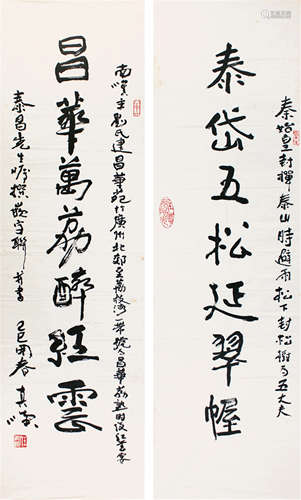 秦始皇封禪泰山時避雨松下封松樹為五大夫
泰岱五松延翠幄
南漢主劉氏建昌華苑於廣州北郊至荔枝灣一帶號昌華荔熟時設紅雲宴
昌華萬荔醉紅雲
泰昌先生囑撰嵌字聯并書 己巳開春